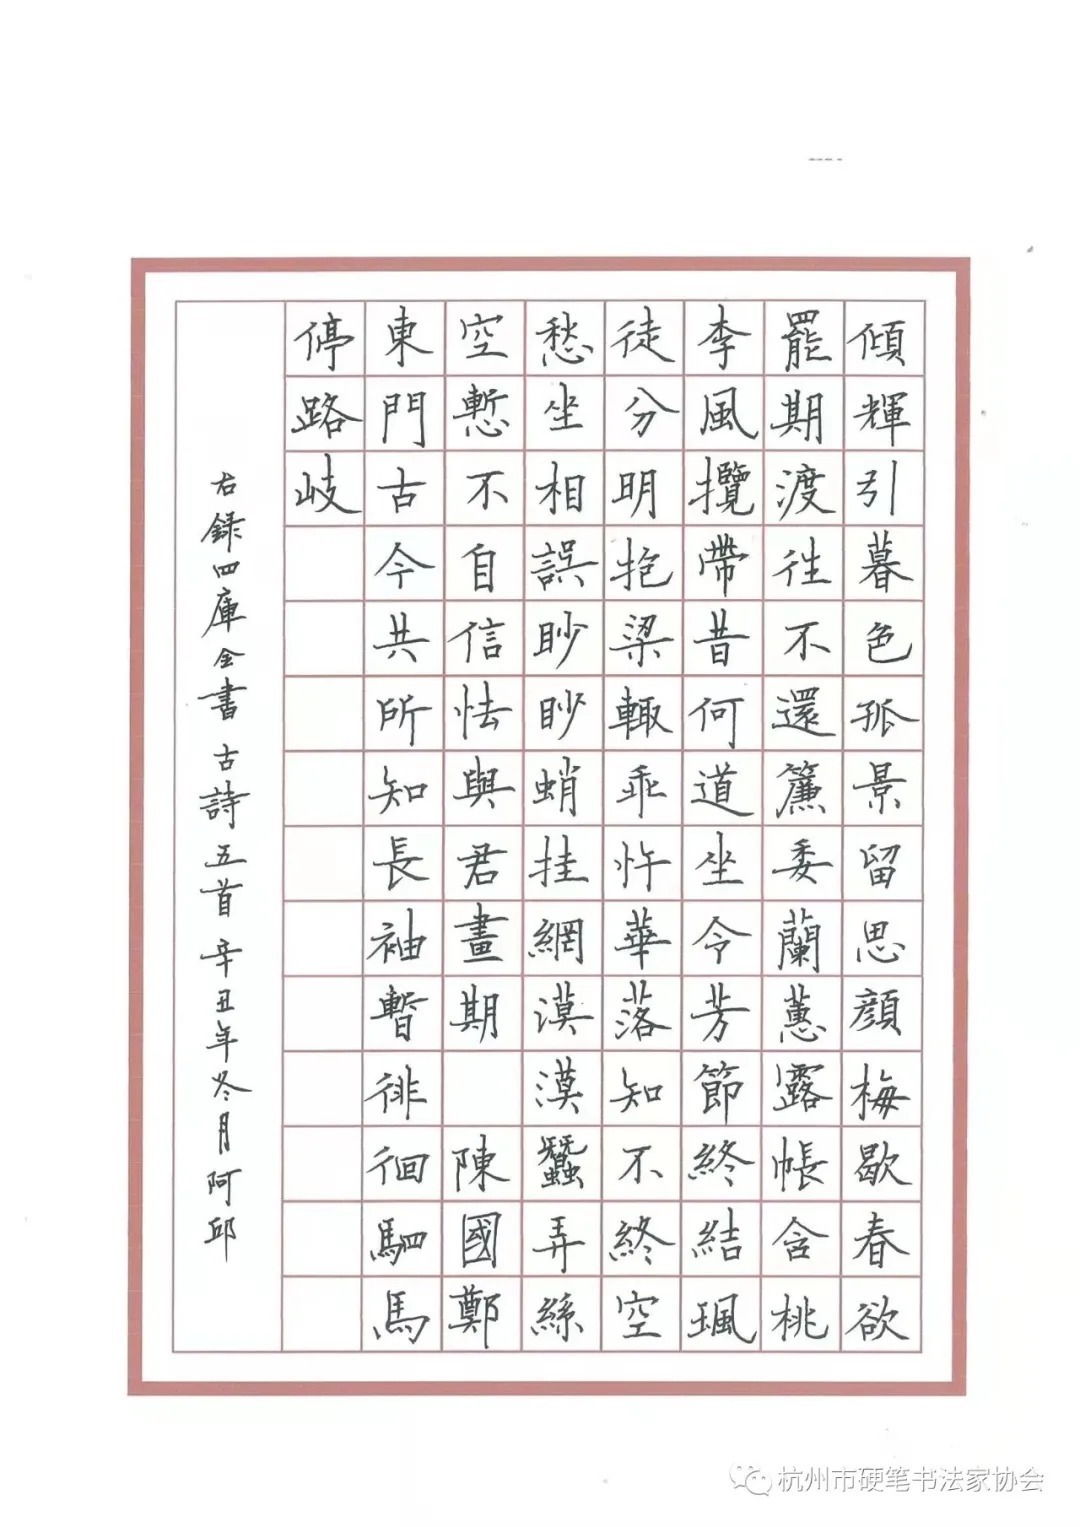 傾輝引暮色孤景留思顔梅歇春欲
罷期渡往不還簾委蘭蕙露帳含桃
李風攬帶昔何道坐令芳節終結珮
徒分明抱梁輙乖忤華落知不終空
愁坐相誤眇眇蛸挂網漠漠蠶弄絲
空慙不自信怯與君畫期 陳國鄭
東門古今共所知長袖暫徘徊駟馬
停路岐
右録四庫全書古詩五首辛丑年冬月阿邱
杭州市硬笔书法家协会